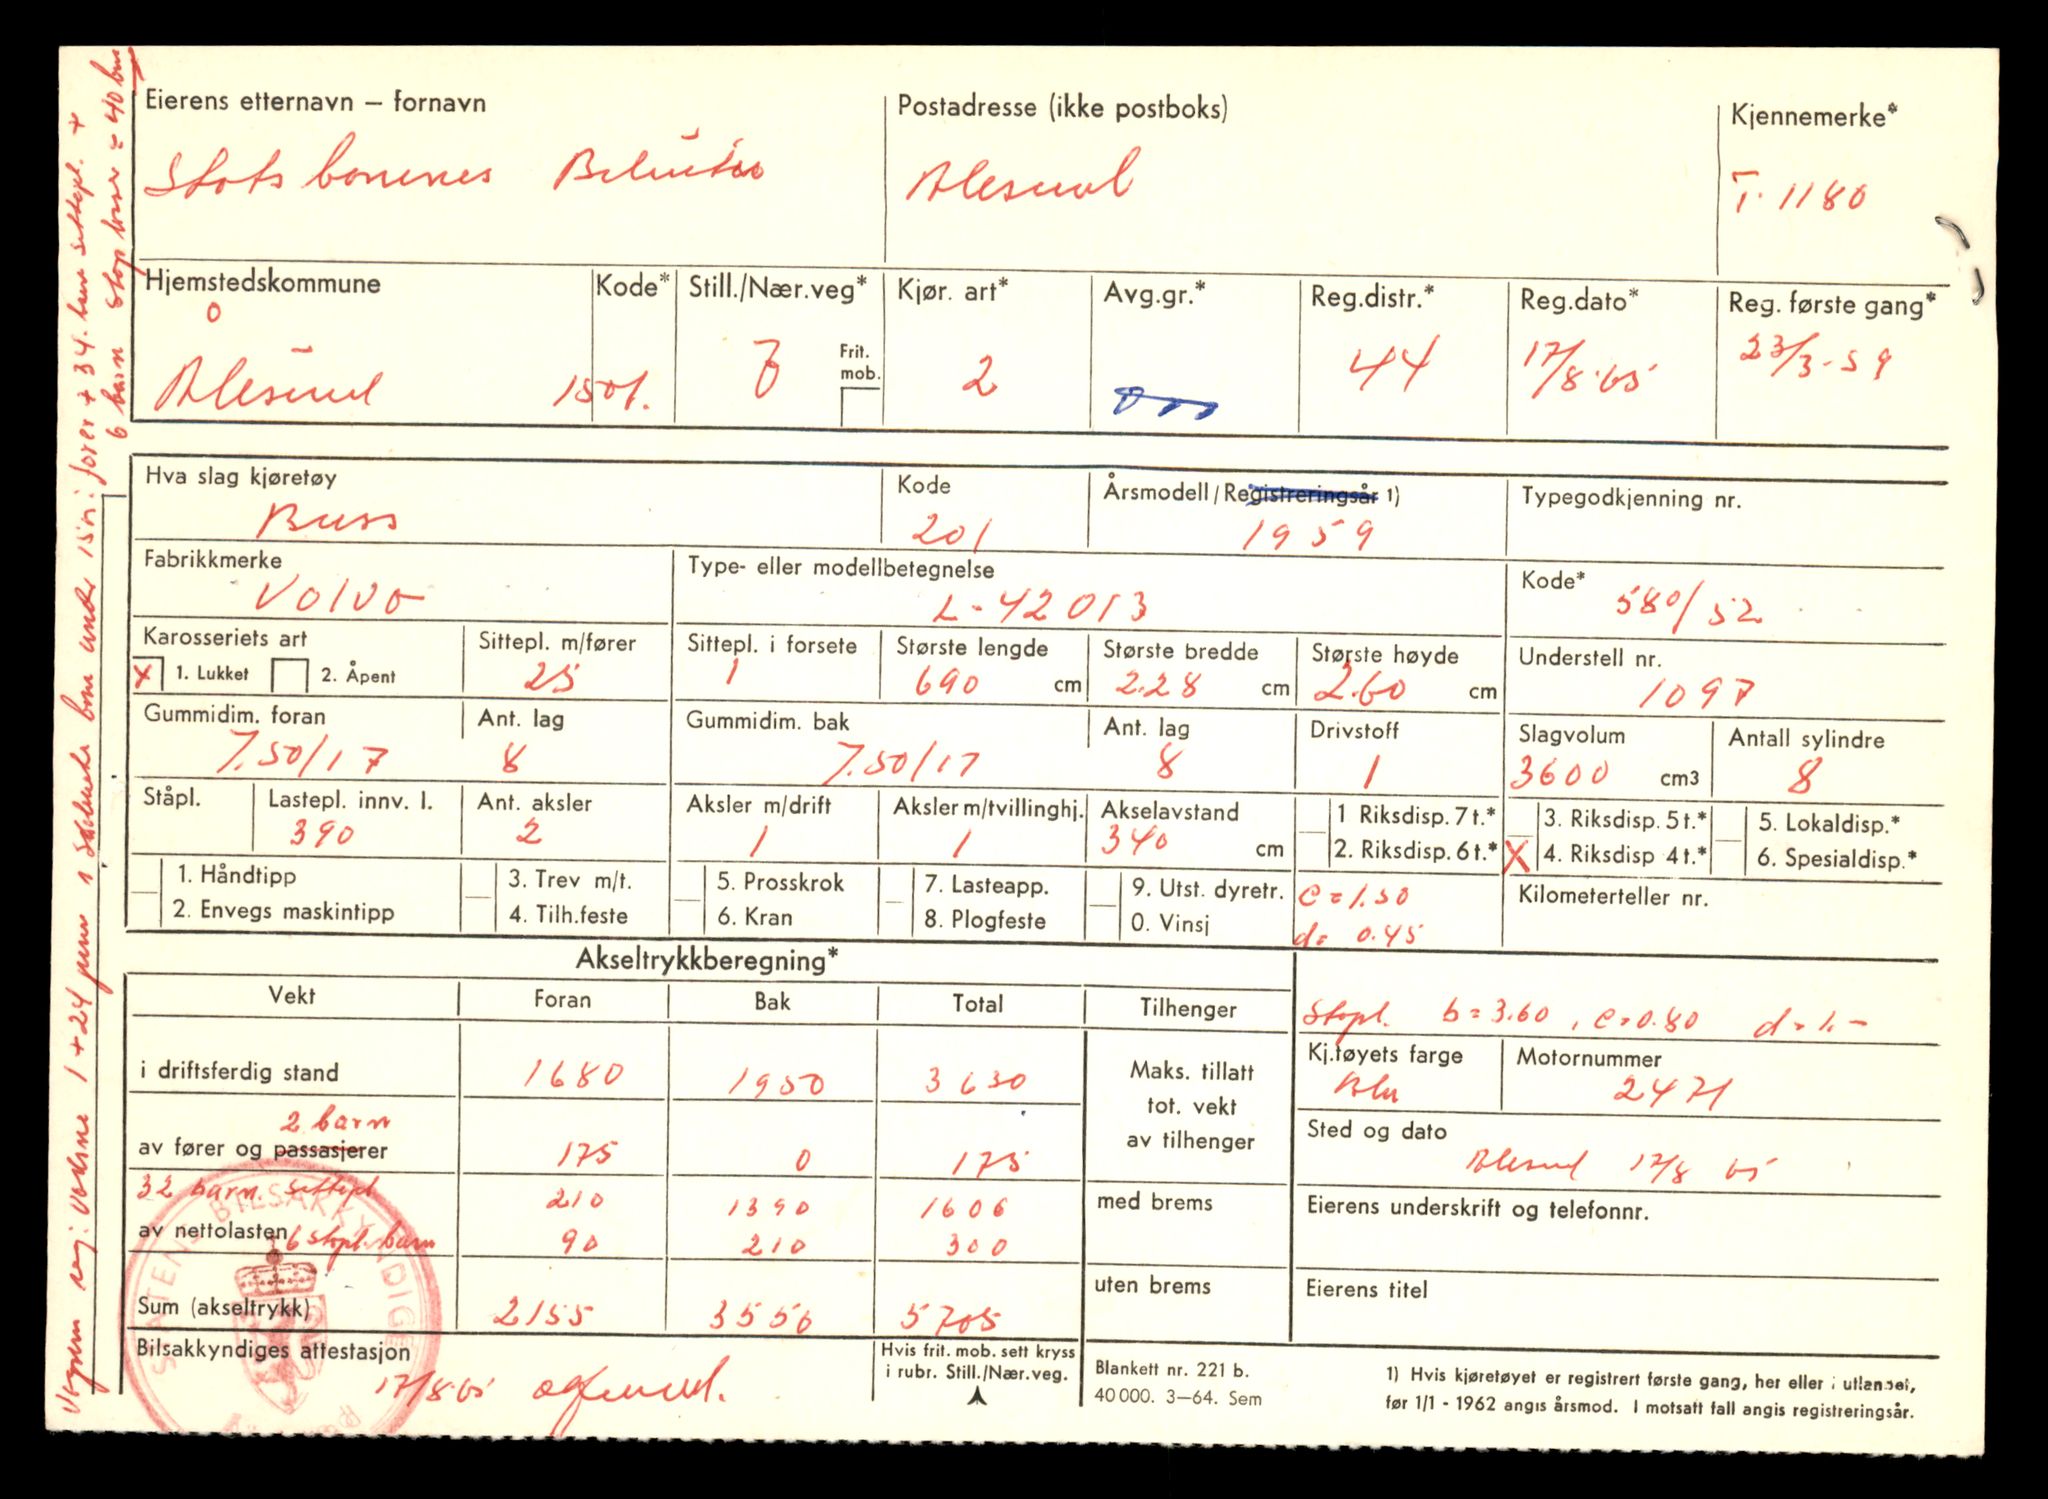 Eierens etternavn – fornavn
Statsbanenes Bilruter
Postadresse (ikke postboks)
Ålesund
Kjennemerke*
T-1180
Hjemstedskommune
Ålesund
Kode*
1501.
Still./Nær.veg*
Frit. mob.
Kjør. art*
2
Avg.gr.*
Reg.distr.*
44
Reg.dato*
17/8-65
Reg. første gang*
23/3-59
Hva slag kjøretøy
Buss
Kode
201
Årsmodell/Registreringsår 1)
1959
Typegodkjenning nr.
Fabrikkmerke
Volvo
Type- eller modellbetegnelse
L-42013
Kode*
580/52
Karosseriets art
x 1. Lukket 2. Åpent
Sittepl. m/fører
25
Sittepl. i forsete
1
Største lengde
690 cm
Største bredde
2.28 cm
Største høyde
2.60 cm
Understell nr.
1097
Gummidim. foran
7.50/17
Ant. lag
8
Gummidim. bak
7.50/17
Ant. lag
8
Drivstoff
1
Slagvolum
3600 cm3
Antall sylindre
8
Ståpl.
Lastepl. innv. l.
390
Ant. aksler
2
Aksler m/drift
1
Aksler m/tvillinghj.
1
Akselavstand
340 cm
1 Riksdisp. 7 t.*
2. Riksdisp. 6 t.*
3. Riksdisp. 5 t.*
X 4. Riksdisp 4 t.*
5. Lokaldisp.*
6. Spesialdisp.*
1. Håndtipp
2. Envegs maskintipp
3. Trev m/t.
4. Tilh.feste
5. Prosskrok
6. Kran
7. Lasteapp.
8. Plogfeste
9. Utst. dyretr.
0. Vinsj
c = 1.50
d = 0.45
Kilometerteller nr.
Akseltrykkberegning*
Vekt Foran Bak Total Tilhenger
i driftsferdig stand 1680 1950 3630
2 barn
av fører og passasjerer 175 0 175
32 barn. sittepl 210 1390 1606
av nettolasten 6 ståpl. barn 90 210 300
Sum (akseltrykk) 2155 3550 5705
Maks. tillatt
tot. vekt
av tilhenger
med brems
uten brems
Ståpl. b = 3.60, c = 0.80 d = 1.-
Kj.tøyets farge
Blå
Motornummer
2471
Sted og dato
Ålesund 17/8 65
Eierens underskrift og telefonnr.
Eierens titel
Bilsakkyndiges attestasjon
17/8-65
Hvis frit. mob. sett kryss
i rubr. Still./Nær.veg.
Blankett nr. 221 b.
40 000. 3–64. Sem
1) Hvis kjøretøyet er registrert første gang, her eller i utlandet,
før 1/1 - 1962 angis årsmod. I motsatt fall angis registreringsår.
STATENS BILSAKKYNDIGE
Vognen reg: voksne 1 + 24 pers barn under 15 år: fører + 34 barn sittepl. +
6 barn ståplasser = 40 barn